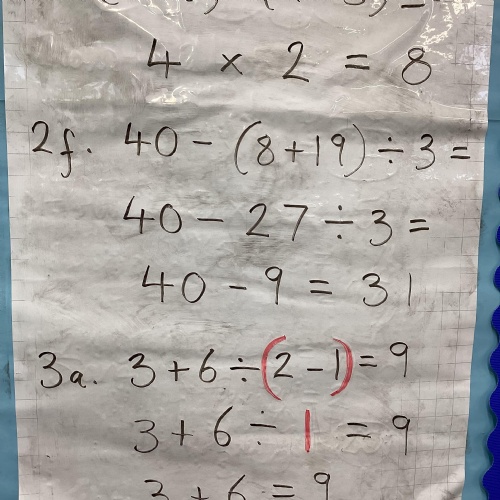 4 × 2 = 8
2f. 40 - (8 + 19) ÷ 3 =
40 - 27 ÷ 3 =
40 - 9 = 31
3a. 3 + 6 ÷ (2 - 1) = 9
3 + 6 ÷ 1 = 9
3 + 6 = 9